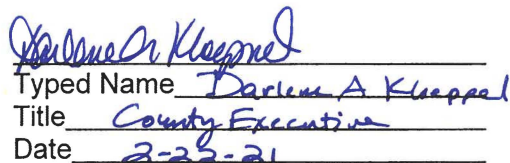 Darlene A Kloeppel
Typed Name Darlene A Kloeppel
Title County Executive
Date 2-22-21